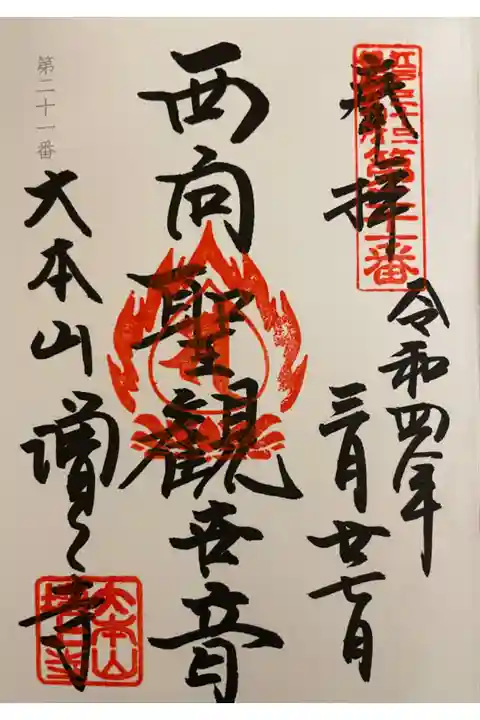 奉拝
令和四年
三月廿七日
西向聖観世音
第二十一番
大本山増上寺
大本山
増上寺